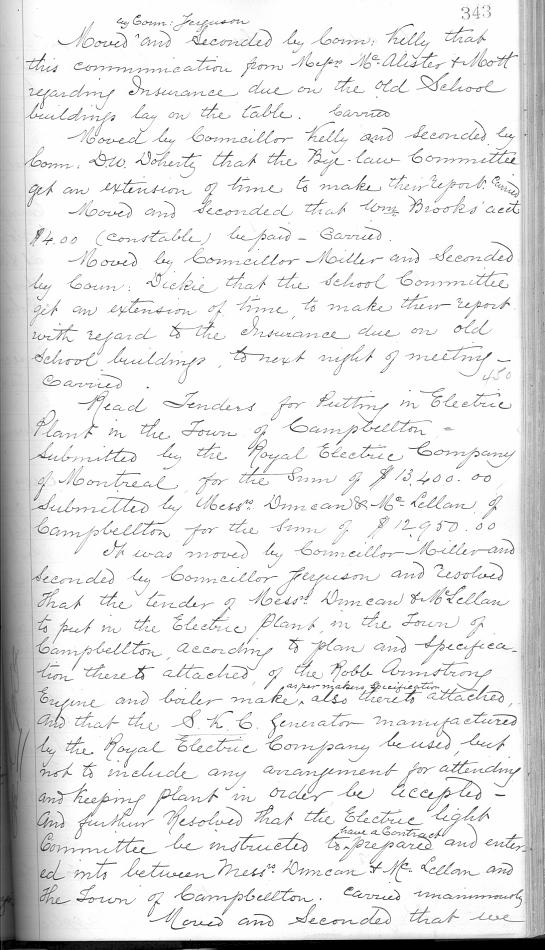 343
by Coun: Ferguson
Moved and Seconded by Coun: Kelly that
this communication from Messrs McAlister & Mott
regarding Insurance due on the old School
buildings lay on the table. Carried
Moved by Councillor Kelly and Seconded by
Coun. D.W. Doherty that the Bye-law Committee
get an extension of time to make their report. Carried
Moved and Seconded that Wm Brooks' acct
$4.00 (constable) be paid - Carried.
Moved by Councillor Miller and Seconded
by Coun: Dickie that the School Committee
get an extension of time, to make their report
with regard to the Insurance due on old
School buildings, to next night of meeting -
Carried.
450
Read Tenders for Putting in Electric
Plant in the Town of Campbellton =
Submitted by the Royal Electric Company
of Montreal, for the Sum of $13,400.00,
Submitted by Messrs Duncan & McLellan, of
Campbellton for the Sum of $12,950.00
It was moved by Councillor Miller and
Seconded by Councillor Ferguson and resolved
That the tender of Messrs Duncan & McLellan
to put in the Electric Plant, in the Town of
Campbellton, according to plan and Specifica-
tion thereto attached, of the Robb Armstrong
as per makers Specification
Engine and boiler make, also thereto attached,
And that the S.K.C. generator manufactured
by the Royal Electric Company be used, but
not to include any arrangement for attending
and keeping plant in order be accepted -
And further Resolved that the Electric light
have a Contract
Committee be instructed to prepared and enter-
ed into between Messrs Duncan & McLellan and
the Town of Campbellton. Carried unanimously
Moved and Seconded that we